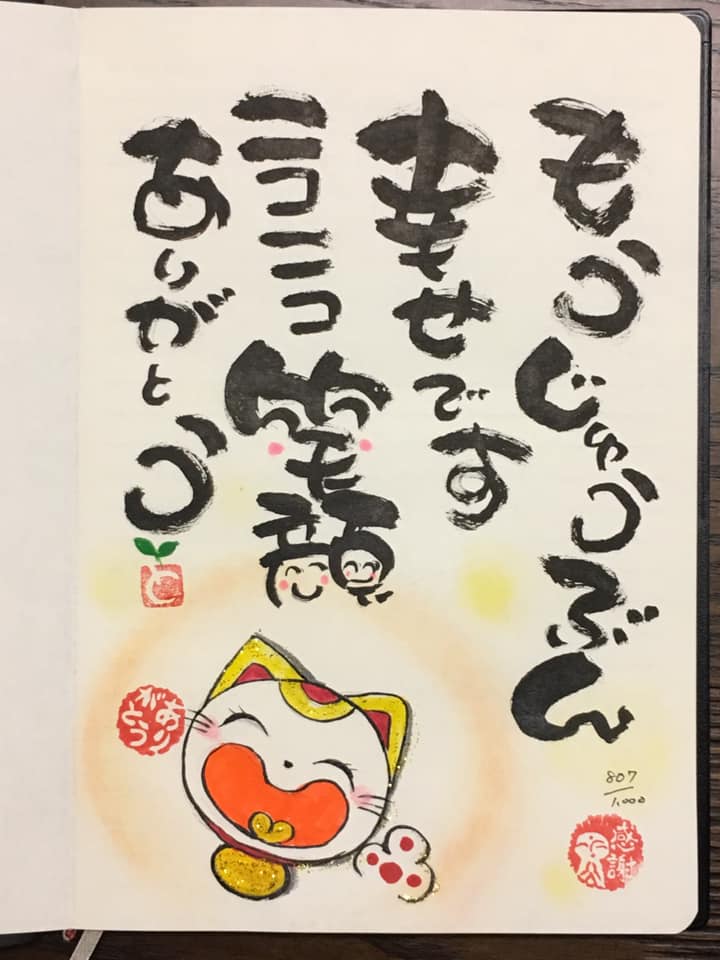 もうじゅうぶん
幸せです
ニコニコ笑顔
ありがとう
ありがとう
807
1,000
感謝